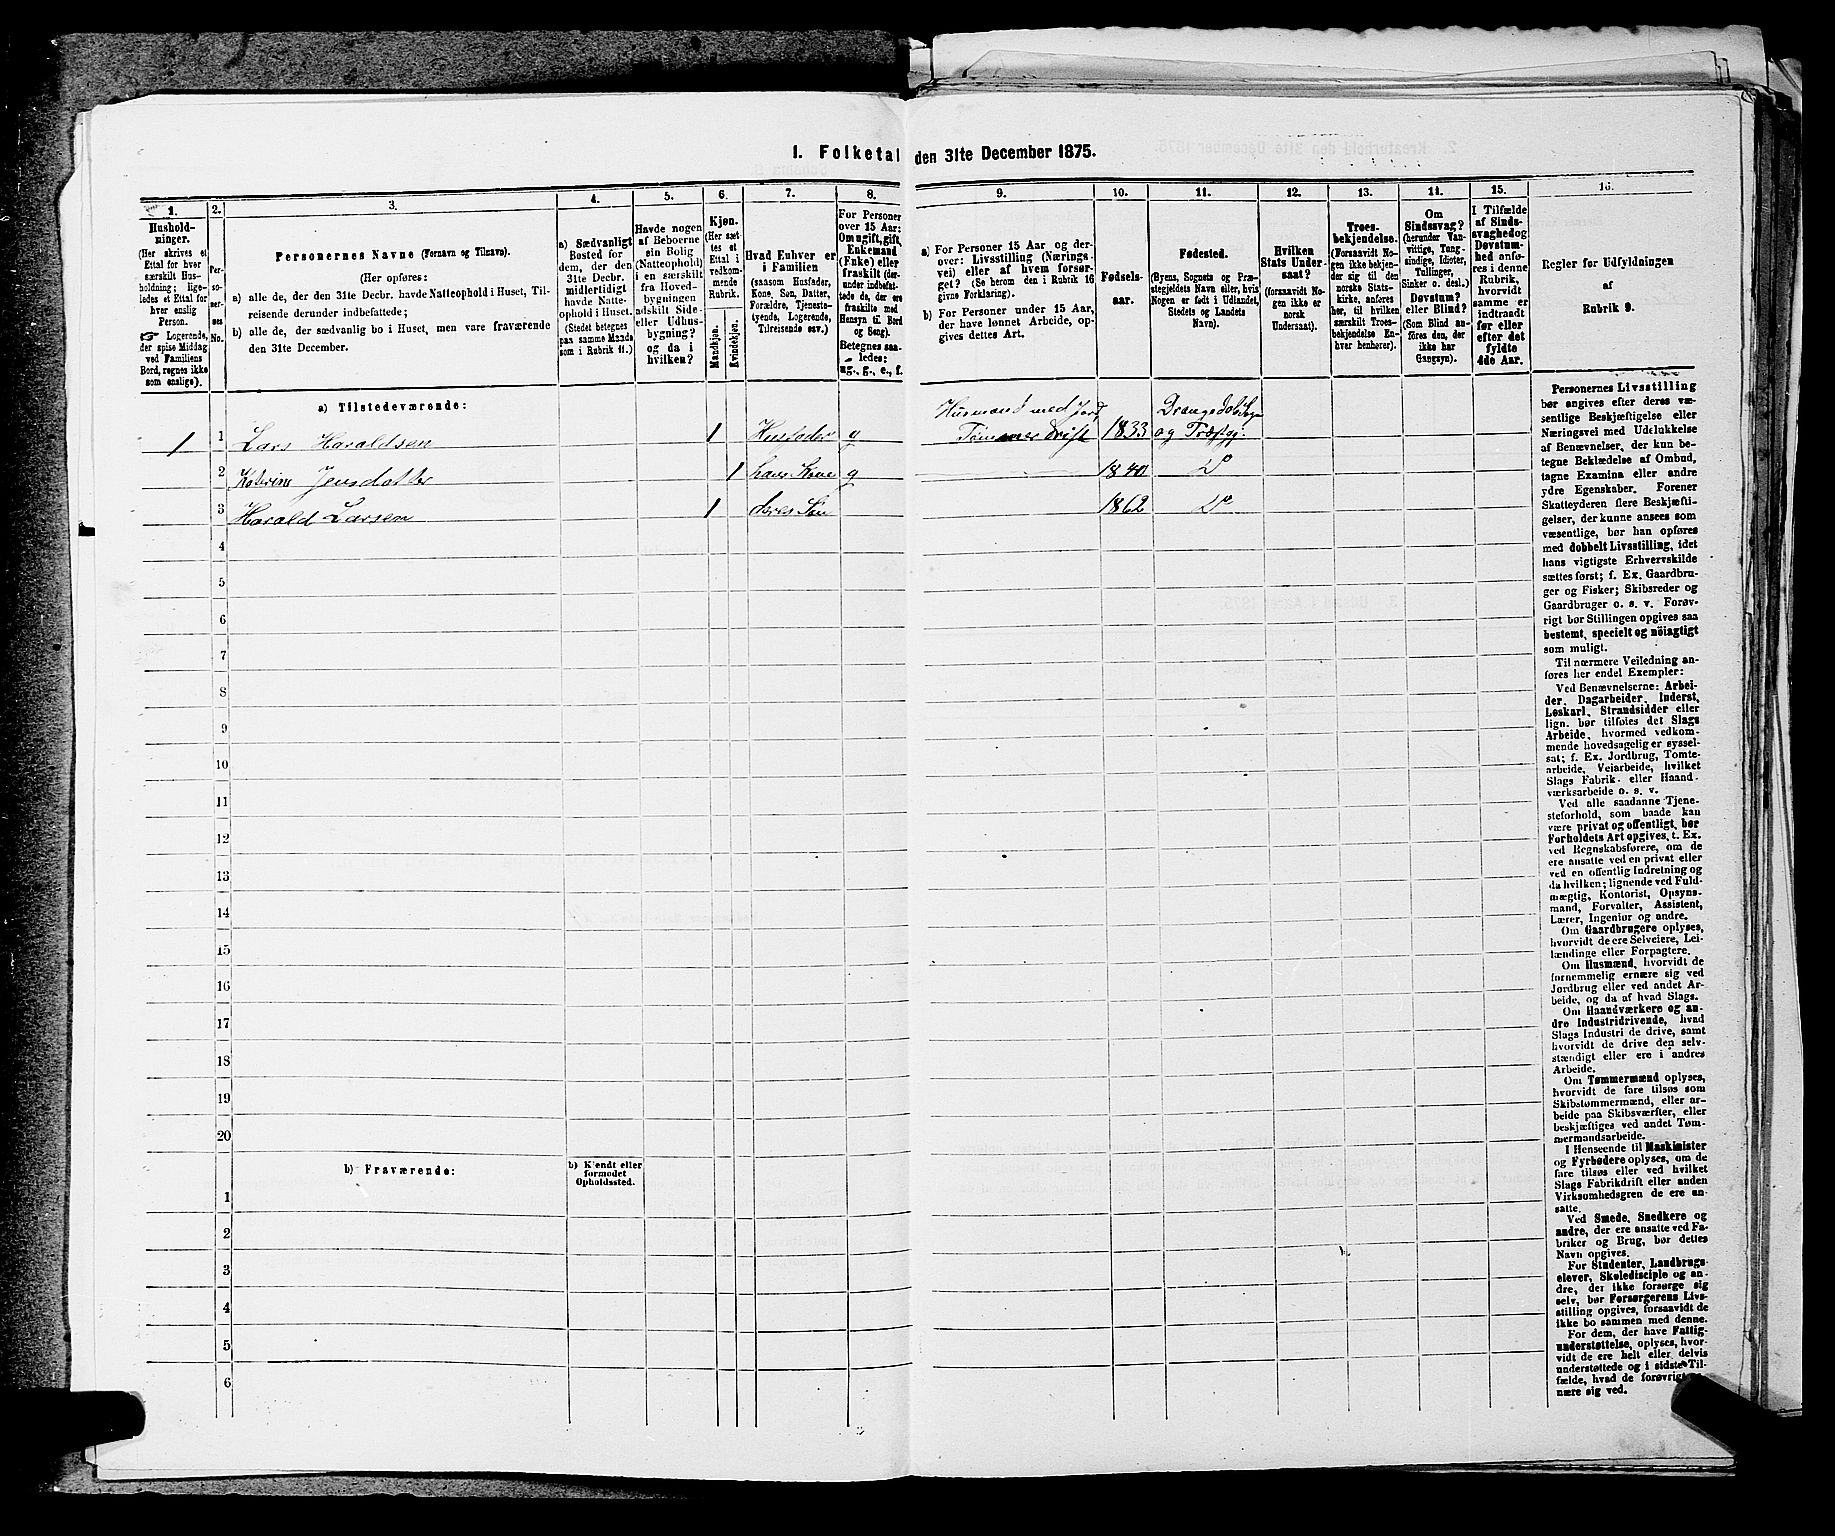 1. Folketal den 31te December 1875.
1.
2.
3.
4.
5.
6.
7.
8.
9.
10.
11.
12.
13.
14.
15.
16.
Hushold-
ninger.
(Her skrives et
Ettal for hver
særskilt Hus-
holdning; lige-
ledes et Ettal for
hver enslig
Person.
☞ Logerende,
der spise Middag
ved Familiens
Bord, regnes ikke
som enslige).
Per-
so-
ner-
nes
No.
Personernes Navne (Fornavn og Tilnavn).
(Her opføres:
a) alle de, der den 31te Decbr. havde Natteophold i Huset, Til-
reisende derunder indbefattede;
b) alle de, der sædvanlig bo i Huset, men vare fraværende
den 31te December.
a) Sædvanligt
Bosted for
dem, der den
31te Decbr.
midlertidigt
havde Natte-
ophold i Huset.
(Stedet betegnes
paa samme Maade
som i Rubrik 11.)
Havde nogen
af Beboerne
sin Bolig
(Natteophold)
i en særskilt
fra Hoved-
bygningen
adskilt Side-
eller Udhus-
bygning?
og da i
hvilken?
Kjøn.
(Her sæt-
tes et
Ettal i
vedkom-
mende
Rubrik.
Mandkjøn.
Kvindekjøn.
Hvad Enhver er
i Familien
(saasom Husfader,
Kone, Søn, Datter,
Forældre, Tjeneste-
tyende, Logerende,
Tilreisende osv.)
For Personer
over 15 Aar:
Om ugift, gift,
Enkemand
(Enke) eller
fraskilt (der-
under indbefat-
tede de, der ere
fraskilte med
Hensyn til Bord
og Seng).
Betegnes saa-
ledes:
ug., g., e., f.
a) For Personer 15 Aar og der-
over: Livsstilling (Nærings-
vei) eller af hvem forsør-
get? (Se herom den i Rubrik 16
givne Forklaring).
b) For Personer under 15 Aar,
der have lønnet Arbeide, op-
gives dettes Art.
Fødsels-
aar.
Fødested.
(Byens, Sognets og Præ-
stegjeldets Navn eller, hvis
Nogen er født i Udlandet,
Stedets og Landets
Navn).
Hvilken
Stats Under-
saat?
(forsaavidt No-
gen ikke er
norsk
Undersaat).
Troes-
bekjendelse.
(Forsaavidt No-
gen ikke bekjen-
der sig til den
norske Stats-
kirke, anføres
her, til hvilken
særskilt Troes-
bekjendelse En-
hver henhører).
Om
Sindssvag?
(herunder Van-
vittige, Tung-
sindige, Idioter,
Tullinger,
Sinker o. desl.)
Døvstum?
eller Blind?
(Som Blind an-
føres den, der
ikke har
Gangsyn).
I Tilfælde
af Sinds-
svaghed og
Døvstum-
hed anfø-
res i denne
Rubrik,
hvorvidt
samme er
indtraadt
før eller
efter det
fyldte
4de Aar.
Regler for Udfyldningen
af
Rubrik 9.
a) Tilstedeværende:
1 1 Lars Haraldsen 1 Husfader g Husmand med Jord, Tømmerdrift 1833 Drangedals Sogn og Præstgj.
2 Katrine Jensdatter 1 hans Kone g 1840 Do
3 Harald Larsen 1 deres Søn 1862 Do
4
5
6
7
8
9
10
11
12
13
14
15
16
17
18
19
20
b) Fraværende:
b) Kjendt eller
formodet
Opholdssted.
1
2
3
4
5
6
Personernes Livsstilling
bør angives efter deres væ-
sentlige Beskjæftigelse eller
Næringsvei med Udelukkelse
af Benævnelser, der kun be-
tegne Beklædelse af Ombud,
tagne Examina eller andre
ydre Egenskaber. Forener
Skatteyderen flere Beskjæfti-
gelser, der kunne ansees som
væsentlige, bør han opføres
med dobbelt Livsstilling, idet
hans vigtigste Erhvervskilde
sættes først; f. Ex. Gaardbru-
ger og Fisker; Skibsreder og
Gaardbruger o. s. v. Forøv-
rigt bør Stillingen opgives saa
bestemt, specielt og nöiagtigt
som muligt.
Til nærmere Veiledning an-
føres her endel Exempler:
Ved Benævnelserne: Arbei-
der, Dagarbeider, Inderst,
Løskarl, Strandsidder eller
lign. bør tilføies det Slags
Arbeide, hvormed vedkom-
mende hovedsagelig er syssel-
sat; f. Ex. Jordbrug, Tomte-
arbeide, Veiarbeide, hvilket
Slags Fabrik- eller Haand-
værksarbeide o. s. v.
Ved alle saadanne Tjene-
steforhold, som baade kan
være privat og offentligt, bør
Forholdets Art opgives, t. Ex.
ved Regnskabsførere, om de
ere ansatte ved en privat eller
ved en offentlig Indretning og
da hvilken; lignende ved Fuld-
mægtig, Kontorist, Opsyns-
mand, Forvalter, Assistent,
Lærer, Ingeniør og andre.
Om Gaardbrugere oplyses,
hvorvidt de ere Selveiere, Lei-
lændinge eller Forpagtere.
Om Husmænd, hvorvidt de
fornemmelig ernære sig ved
Jordbrug eller ved andet Ar-
beide, og da af hvad Slags.
Om Haandværkere og an-
dre Industridrivende, hvad
Slags Industri de drive, samt
hvorvidt de drive den selv-
stændigt eller ere i andres
Arbeide.
Om Tømmermænd oplyses,
hvorvidt de fare tilsøs som
Skibstømmermænd, eller ar-
beide paa Skibsværfter, eller
beskjæftiges ved andet Tøm-
mermandsarbeide.
I Henseende til Maskinister
og Fyrbødere oplyses, om de
fare tilsøs eller ved hvilket
Slags Fabrikdrift eller anden
Virksomhedsgren de ere an-
satte.
Ved Smede, Snedkere og
andre, der ere ansatte ved Fa-
briker og Brug, bør dettes
Navn opgives.
For Studenter, Landbrugs-
elever, Skoledisciple og an-
dre, der ikke forsørge sig
selv, bør Forsørgerens Livs-
stilling opgives, forsaavidt de
ikke bo sammen med denne.
For dem, der have Fattig-
understøttelse, oplyses, hvor-
vidt de ere helt eller delvis
understøttede og i sidste Til-
fælde, hvad de forøvrigt
nære sig ved.